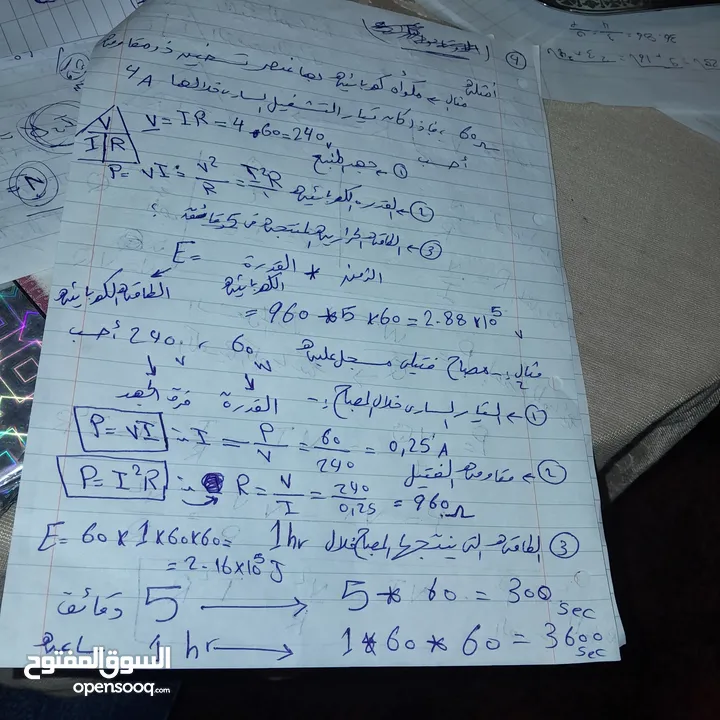 ④
أمثلة
مثال ← مكواه كهربائية بها عنصر تسخين ذو مقاومة
60Ω، فاذا كان تيار التشغيل السارى خلالها 4A
أحسب
V = IR = 4 * 60 = 240 V
V
I | R
① ← جهد المنبع
② ← القدرة الكهربائية P = VI = V²/R = I²R
③ ← الطاقة الحرارية المنتجة فى 5 دقائق ؟
E = القدرة * الزمن
الكهربائية
الطاقة الكهربائية
= 960 * 5 x 60 = 2.88 x 10⁵
مثال 2 :- مصباح فتيلى مسجل عليه 60 w ، 240 v أحسب
القدرة
فرق الجهد
① ← التيار السارى خلال المصباح :-
P = VI ∴ I = P/V = 60/240 = 0,25 A
② ← مقاومة الفتيل
P = I²R ∴ R = V/I = 240/0,25 = 960 Ω
③ الطاقة التى ينتجها المصباح خلال 1hr
E = 60 x 1 x 60 x 60 =
= 2.16 x 10⁵ J
5 دقائق → 5 * 60 = 300 sec
ساعة 1 hr → 1 * 60 * 60 = 3600 sec
السوق المفتوح
opensooq.com